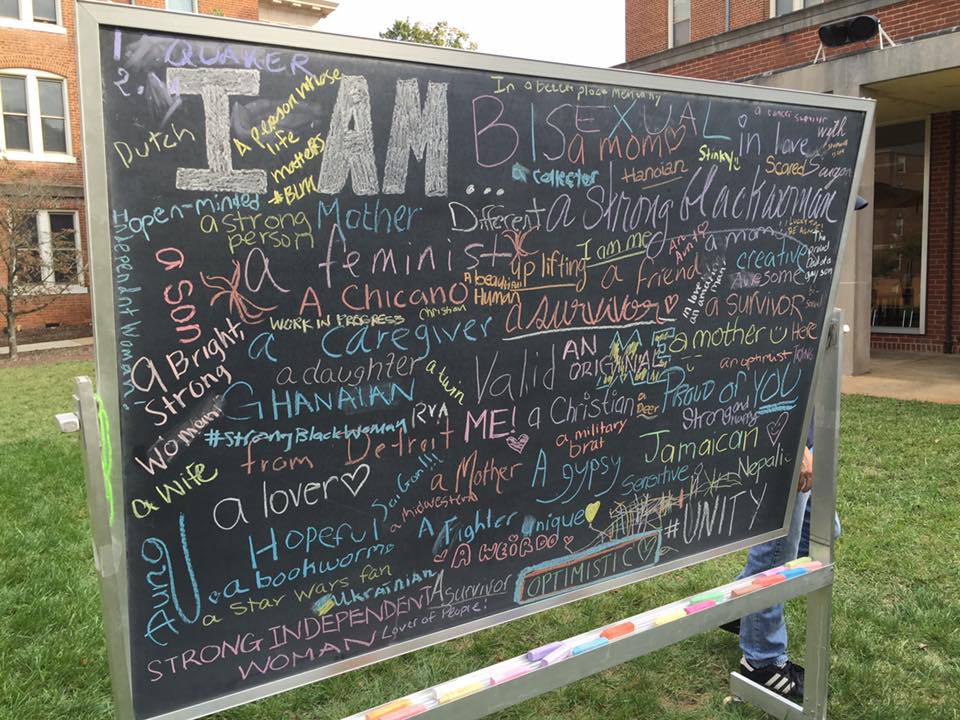 1. QUAKER
2.
I AM
...
Dutch
A person whose
life
matters
#BLM
In a better place mentally
BISEXUAL
a mom
in love
a cancer survivor
Hopen-minded
a strong
person
Mother
Different
a collector
Hanoian
Stinky
Scared
a strong black woman
Independent Woman.
a son
a feminist
A Chicano
A beautiful
Human
up lifting
I am me
a friend
an
Aunt
a mom
creative
Awesome
The
proud
gay son
WORK IN PROGRESS
Christian
a caregiver
a survivor
in love
a survivor
a Bright,
Strong
Woman
a daughter
a twin
Valid
AN
ORIGINAL
a mother
Here
an optimist
GHANAIAN
#StrongBlackWoman
RVA
ME!
a Christian
a
Deer
Proud of YOU
from Detroit
a military
brat
Strong and
Jamaican
a Wife
a lover
Saigon!!!
a midwestern
a Mother
A gypsy
Sensitive
Nepali
Hopeful
A Fighter
Unique
#UNITY
Aung
a bookworm
A WEIRDO
a star wars fan
Ukrainian
A survivor
OPTIMISTIC
STRONG INDEPENDENT
WOMAN
Lover of People!